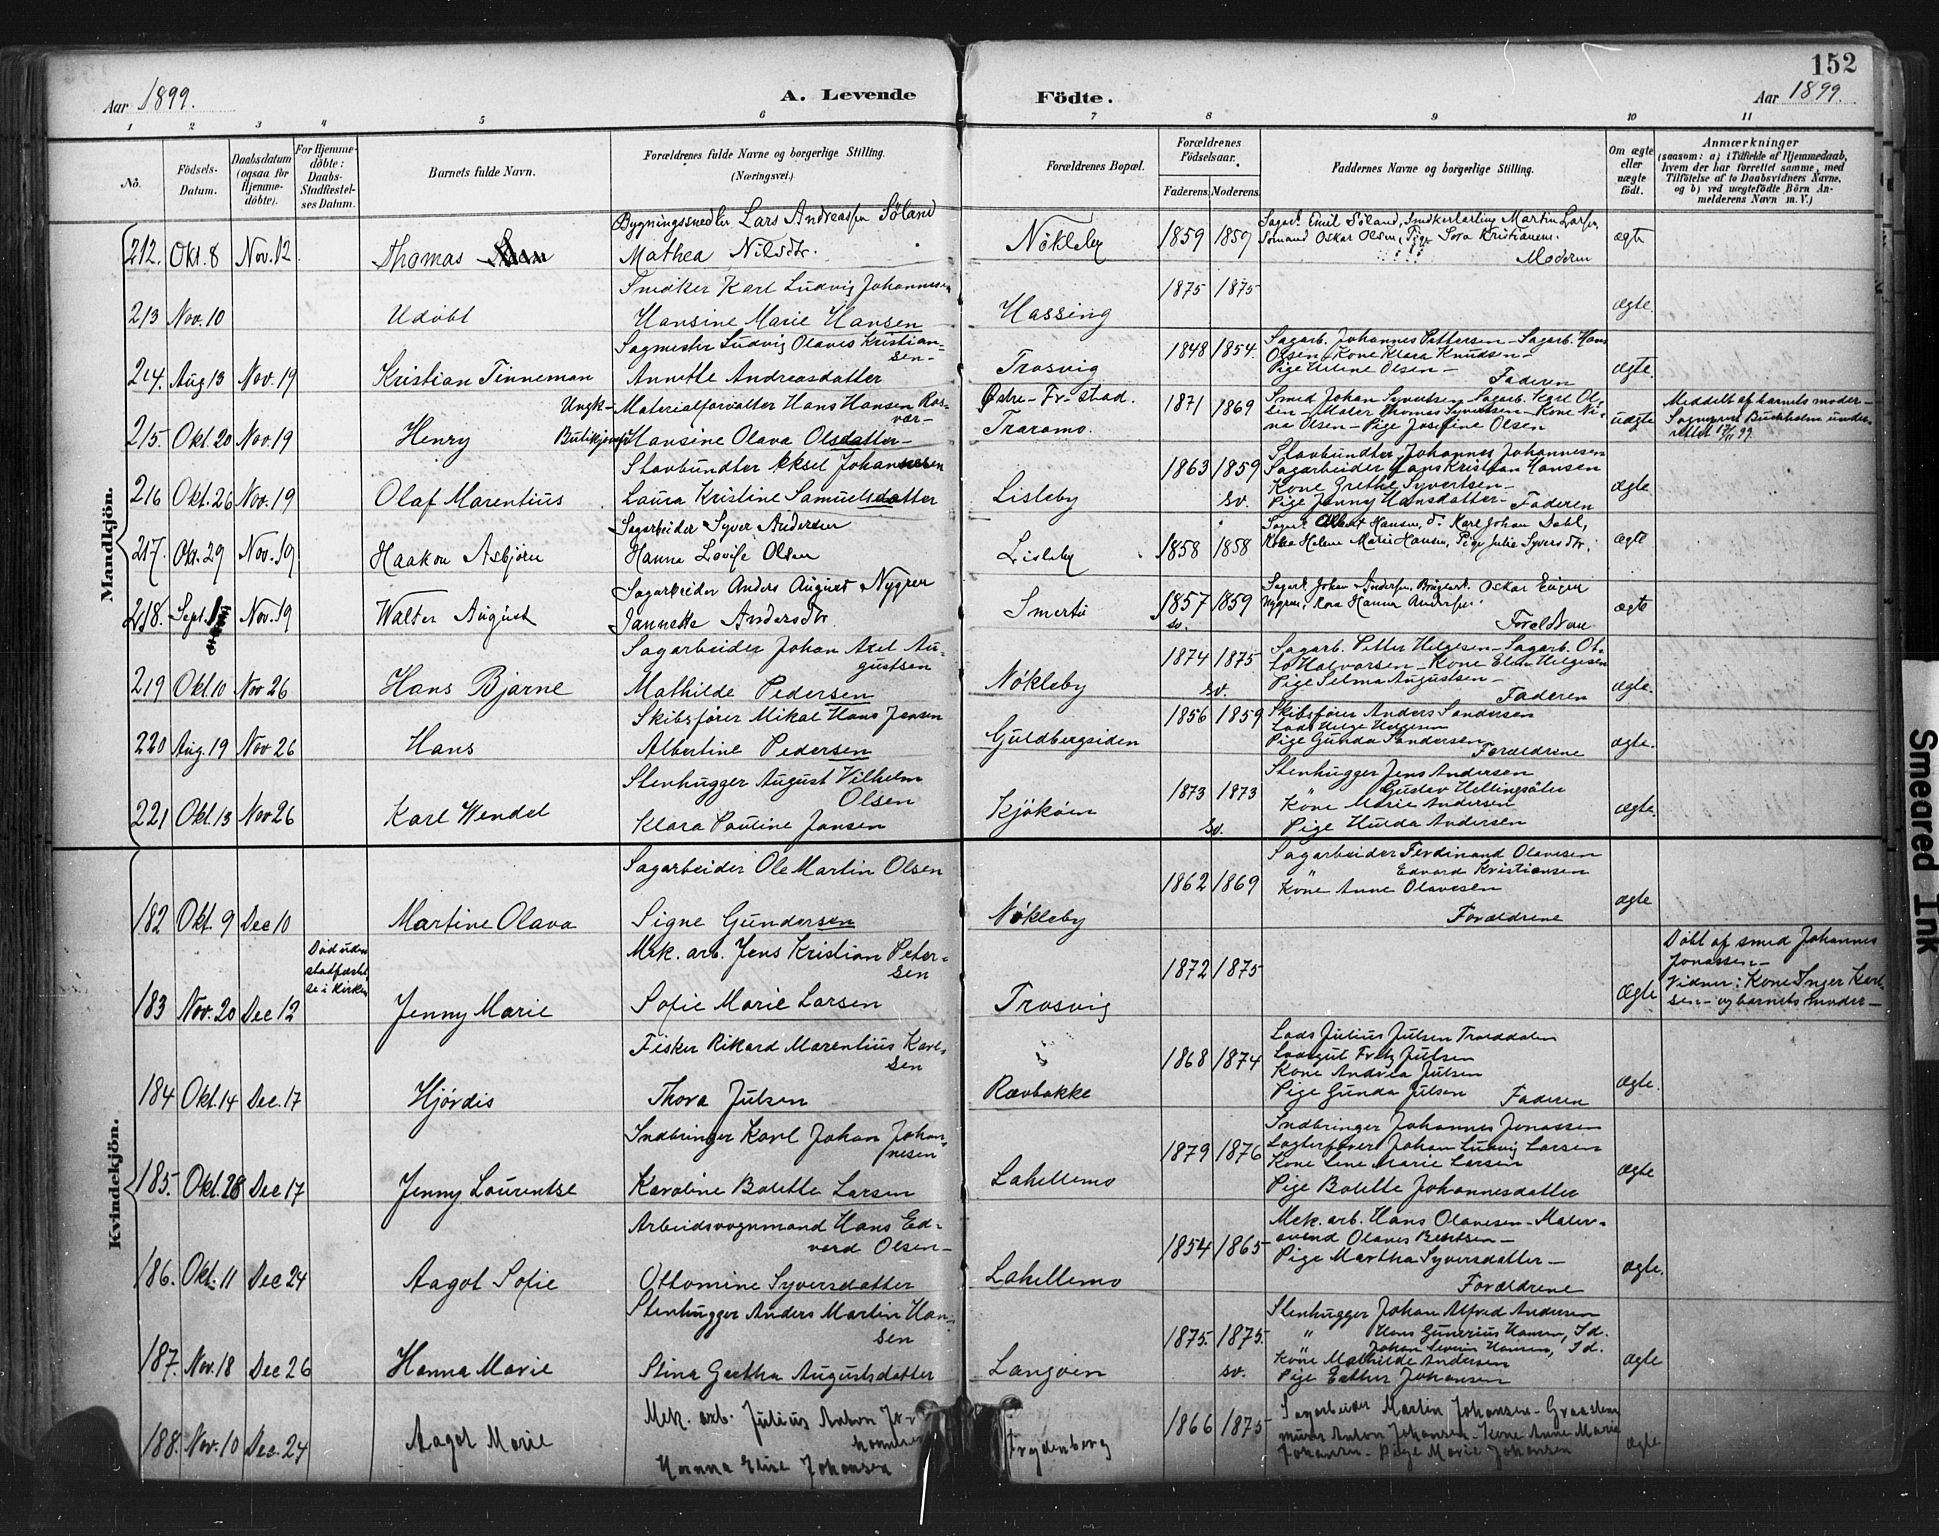 152
Aar 1899. A. Levende Födte. Aar 1899.
1 2 3 4 5 6 7 8 9 10 11
No. Födsels-Datum. Daabsdatum (ogsaa for Hjemme-döbte). For Hjemme-döbte: Daabs-Stadfæstel-ses Datum. Barnets fulde Navn. Forældrenes fulde Navne og borgerlige Stilling. (Næringsvei.) Forældrenes Bopæl. Forældrenes Födselsaar. Faderens. Moderens. Faddernes Navne og borgerlige Stilling. Om ægte eller uægte födt. Anmærkninger (saasom: a) i Tilfælde af Hjemmedaab, hvem der har forrettet samme, med Tilföielse af to Daabsvidners Navne, og b) ved uægtefödte Börn An-melderens Navn m. V.)
Mandkjön.
Bygningssnedker Lars Andreassen Söland
212. Okt. 8 Nov. 12 Thomas Mathea Nilsdtr. Nökleby 1859 1859 Sagarb. Emil Söland, Martin Larsen
Sömand Oskar Olsen, Pige Kristiansen. Moderen ægte
Snedker Karl Ludvig Johannesen
213 Nov. 10 Udöbt Hansine Marie Hansen Hassing 1875 1875 ægte.
Sagmester Ludvig Olaves Kristian-
sen-
214. Aug 13 Nov. 19 Kristian Tinneman Annette Andreasdatter Trosvig 1848 1854. Sagarb. Johannes Pettersen - Sagarb. Hans
Olsen - Kone Klara Knudsen -
Pige Helene Olsen - Faderen ægte.
Ungk- Materialforvalter Hans Hansen Ros-
vær-
215. Okt. 20 Nov. 19 Henry Hansine Olava Olsdatter - Östre-Fr-stad.
Traramo. 1871 1869 Smed Johan Syvertsen - Sagarb. Karl Ol-
sen - Maler Thomas Syvertsen - Kone Ni-
na Olsen - Pige Josefine Olsen uægte Meddelt af barnets moder -
Sogneprest Buckholm under-
rettet 17/11 99.
Stavbundter Aksel Johannesen
216 Okt. 26 Nov. 19 Olaf Marentius Laura Kristine Samuelsdatter Lisleby 1863 1859
sv. Stavbundter Johannes Johannesen
Sagarbeider Hans Kristian Hansen
Kone Grethe Syvertsen -
Pige Jenny Hansdatter - Faderen ægte
Sagarbeider Syver Andersen
217. Okt. 29 Nov. 19 Haakon Asbjörn Hanna Lovise Olsen Lisleby 1858 1858 Sagarb. Albert Hansen, d. Karl Johan Dahl,
Kone Helene Marie Hansen, Pige Julie Syversdtr. ægte
Sagarbeider Anders August Nygren
218. Sept. Nov. 19 Walter August Jannette Andersdtr. Smertu 1857 1859
sv. Sagarb. Johan Andersen, Oskar Eugen
Nygren, Kone Hanna Andersen Forældrene ægte
Sagarbeider Johan Axel Au-
gustsen
219 Okt 10 Nov 26 Hans Bjarne Mathilde Pedersen Nökleby 1874 1875
sv. Sagarb. Petter Helgesen - Sagarb. Ot-
to Halvorsen - Kone Elen Helgesen
Pige Selma Augustsen -
Faderen ægte.
Skibsförer Mikal Hans Jensen
220 Aug. 19 Nov 26 Hans Albertine Pedersen Guldbergsiden 1856 1859 Skibsförer Anders Sandersen
Lods Helge Helgesen
Pige Gunda Sandersen
Forældrene ægte.
Stenhugger August Vilhelm
Olsen
221 Okt. 13 Nov 26 Karl Wendel Klara Pauline Jansen Kjököen 1873 1873
sv. Stenhugger Jens Andersen
" Gustav Hellingsäter
Kone Marie Andersen
Pige Hulda Andersen ægte.
Kvindekjön.
Sagarbeider Ole Martin Olsen
182 Okt. 9 Dec 10 Martine Olava Signe Gundersen Nökleby 1862 1869 Sagarbeider Ferdinand Olavesen
" Edvard Kristiansen
Kone Anne Olavesen
Forældrene ægte
Mek. arb. Jens Kristian Peter-
sen
183 Nov. 20 Dec 12 Död uden
stadfæstel
se i kirken Jenny Marie Sofie Marie Larsen Trosvig 1872 1875 Ægte Döbt af smed Johannes
Jonassen -
Vidner: Kone Inger Karl-
sen - og barnets moder -
Fisker Rikard Marentius Karl-
sen
184 Okt. 14 Dec. 17 Hjördis Thora Julsen Rævbakke 1868 1874 Lods Julius Julsen Traalddalen
Lodsgut Fritz Julsen
Kone Andrea Julsen
Pige Gunda Julsen Faderen ægte.
Indbringer Karl Johan Johan-
nesen
185. Okt. 28 Dec 17 Jenny Laurentse Karoline Bolette Larsen Lahellemo 1879 1876 Indbringer Johannes Jonassen
Johan Ludvig Larsen
Kone Lene Marie Larsen
Pige Bolette Johannesdatter ægte
Arbeidsvognmand Hans Ed-
vard Olsen -
186. Okt. 11 Dec 24 Aagot Sofie Ottomine Syversdatter Lahellemo 1854 1865 Mek. arb. Hans Olavesen - Maler-
svend Olaves Bentsen -
Pige Martha Syversdatter -
Forældrene ægte.
Stenhugger Anders Martin Han-
sen
187. Nov. 18 Dec 26 Hanna Marie Stina Gretha Augustsdatter Langöen 1875. 1875.
sv. Stenhugger Johan Alfred Andersen
" Hans Gunerius Hansen, Id.
Johan Severin Hansen, Id.
Kone Mathilde Andersen
Pige Esther Johansen ægte
Mek. arb. Julius Anton Jo-
hannesen
188. Nov. 10 Dec. 24 Aagot Marie Hanna Elise Johansen Frydenberg 1866 1875 Sagarbeider Martin Johansen - Graasten
murer Anton Johansen - Kone Anne Marie
Johansen - Pige Marie Johansen ægte
Smeared Ink